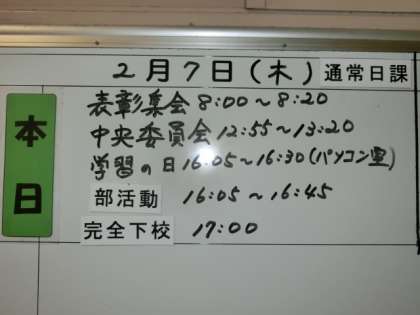 2月7日(木) 通常日課
本日
表彰集会 8:00~8:20
中央委員会 12:55~13:20
学習の日 16:05~16:30(パソコン室)
部活動 16:05~16:45
完全下校 17:00